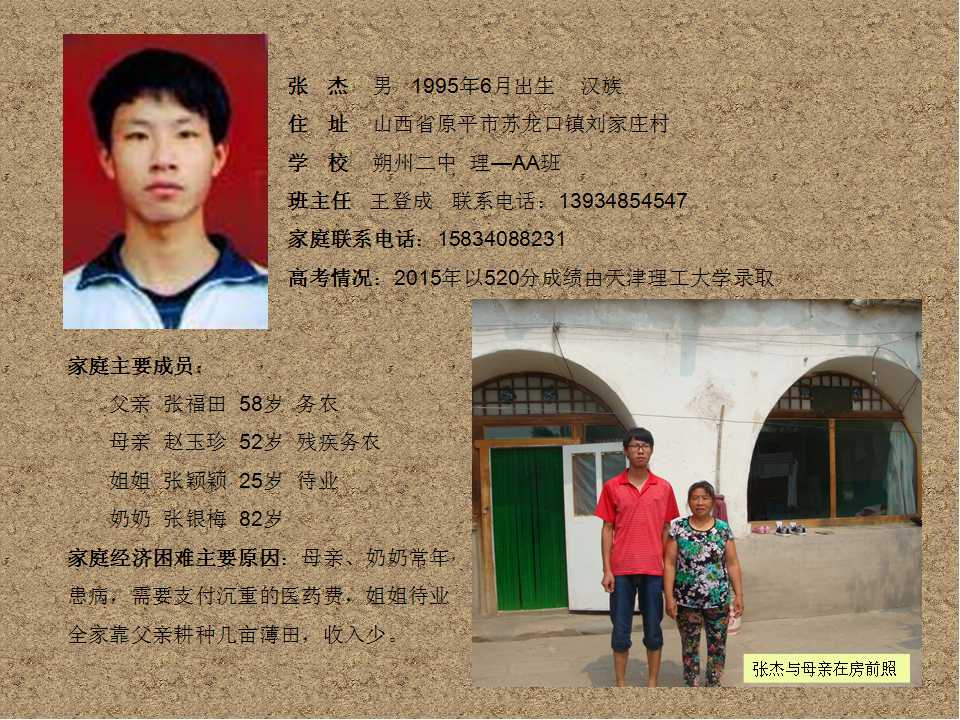 张 杰 男 1995年6月出生 汉族
住 址 山西省原平市苏龙口镇刘家庄村
学 校 朔州二中 理—AA班
班主任 王登成 联系电话：13934854547
家庭联系电话：15834088231
高考情况：2015年以520分成绩由天津理工大学录取
家庭主要成员：
父亲 张福田 58岁 务农
母亲 赵玉珍 52岁 残疾务农
姐姐 张颖颖 25岁 待业
奶奶 张银梅 82岁
家庭经济困难主要原因：母亲、奶奶常年
患病，需要支付沉重的医药费，姐姐待业
全家靠父亲耕种几亩薄田，收入少。
张杰与母亲在房前照